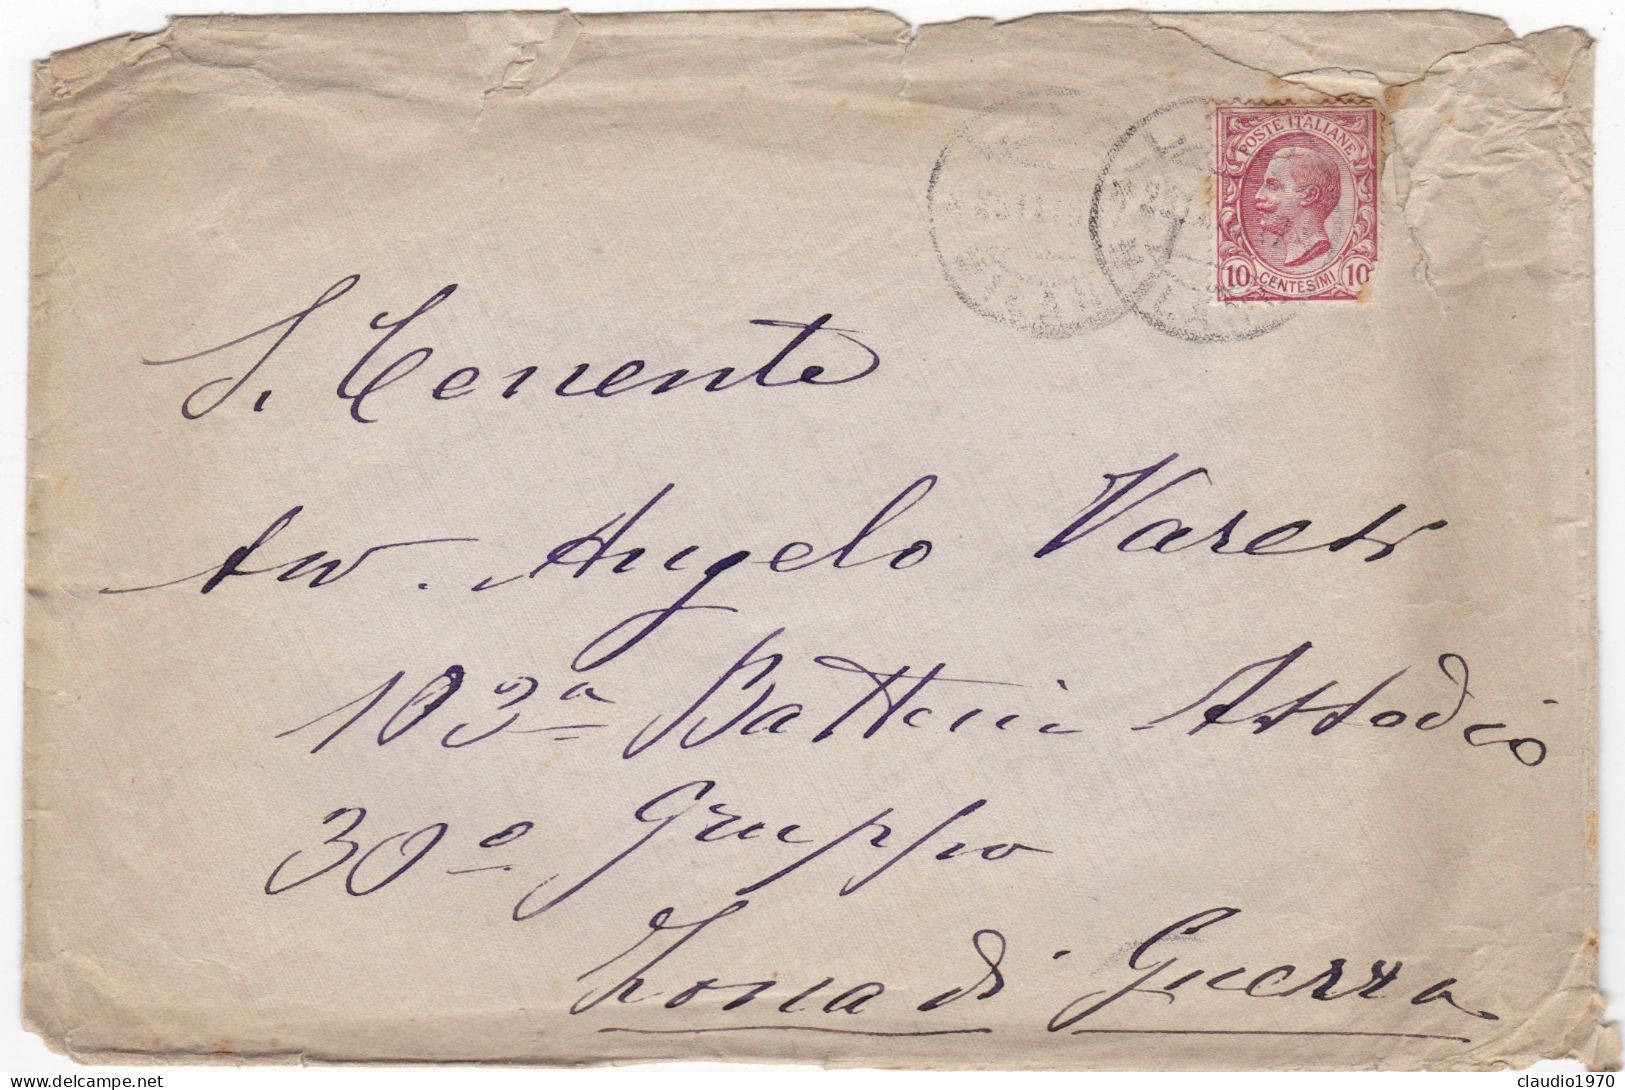 POSTE ITALIANE
10 CENTESIMI 10
S. Tenente
Avv. Angelo Varesi
103ª Batteria Assedio
30º Gruppo
Zona di Guerra
delcampe.net
claudio1970